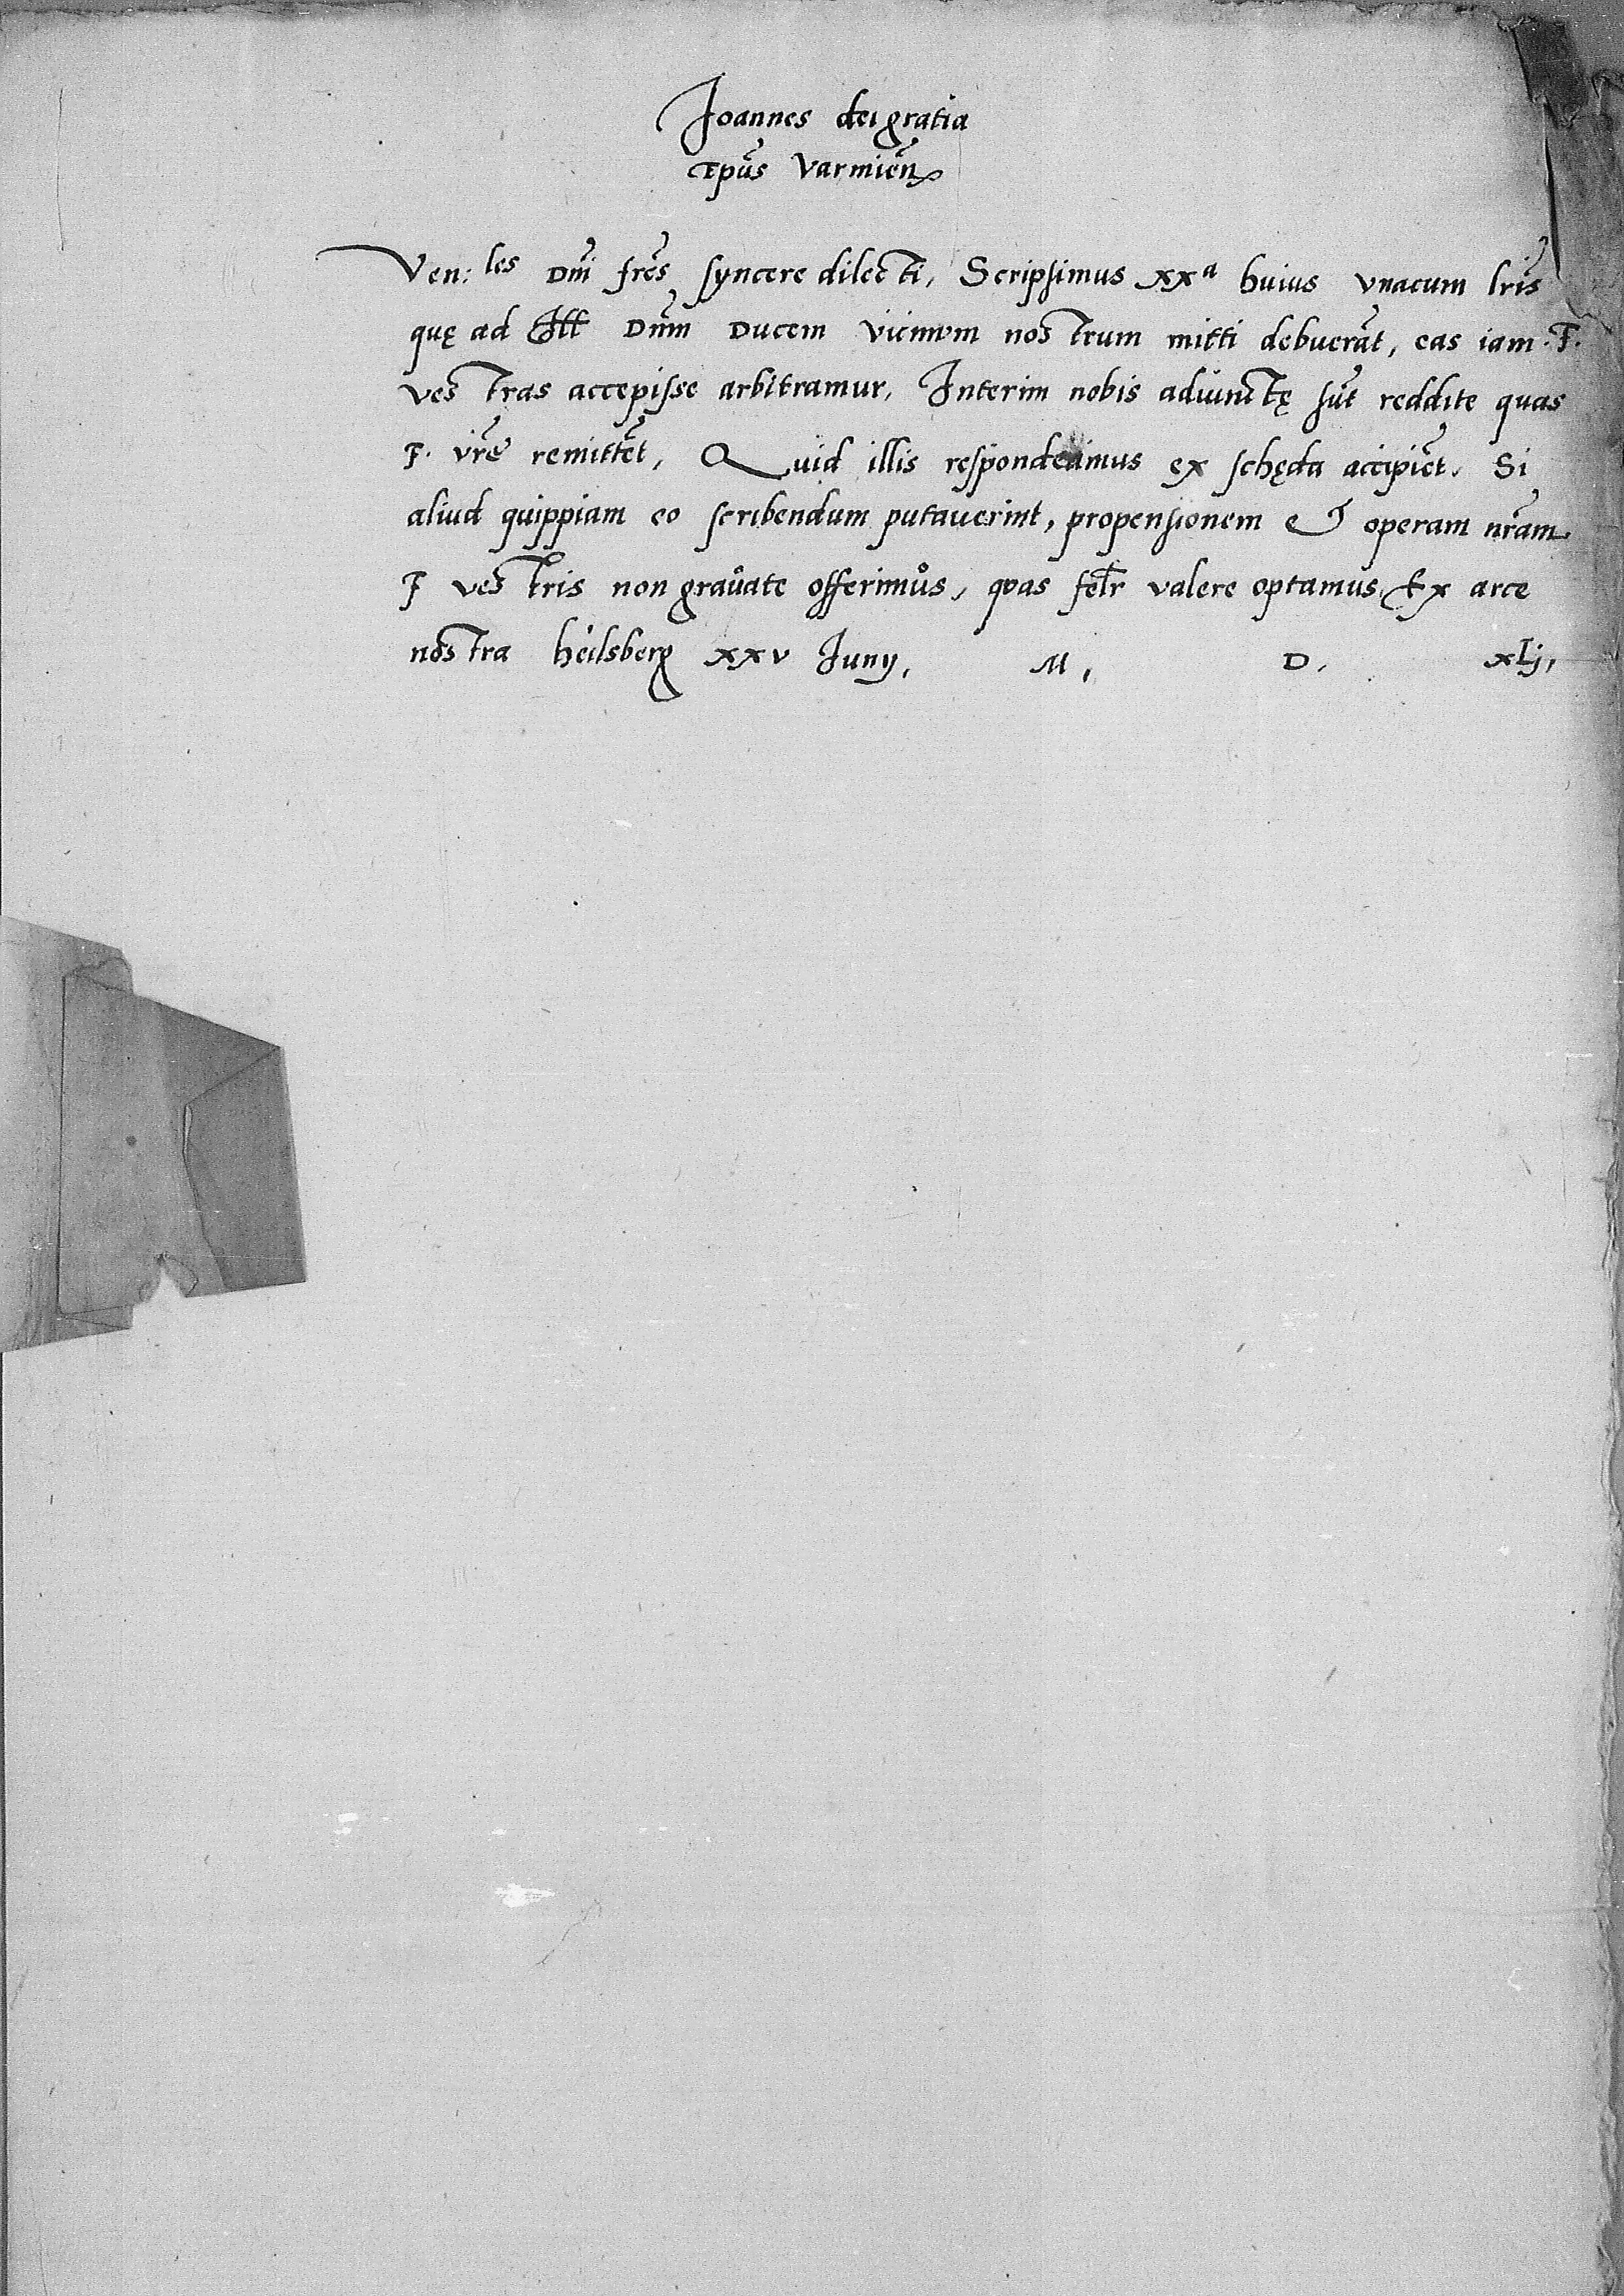 Joannes dei gratia
Epūs Varmieñ
Ven: les Dnī frēs syncere dilecti, Scripsimus xxᵃ huius vnacum lrīs
quę ad Ill Dnm̄ Ducem vicinum nostrum mitti debuerāt, eas iam F.
vestras accepisse arbitramur, Interim nobis adiunctę sūt reddite quas
F. vrē remittēt, Quid illis respondeamus ex schęda accipiēt. Si
aliud quippiam eo scribendum putaverint, propensionem & operam nrām
F vestris non gravate offerimus, quas felr̄ valere optamus. Ex arce
nostra heilsberg xxv Junÿ, M, D. xLj,